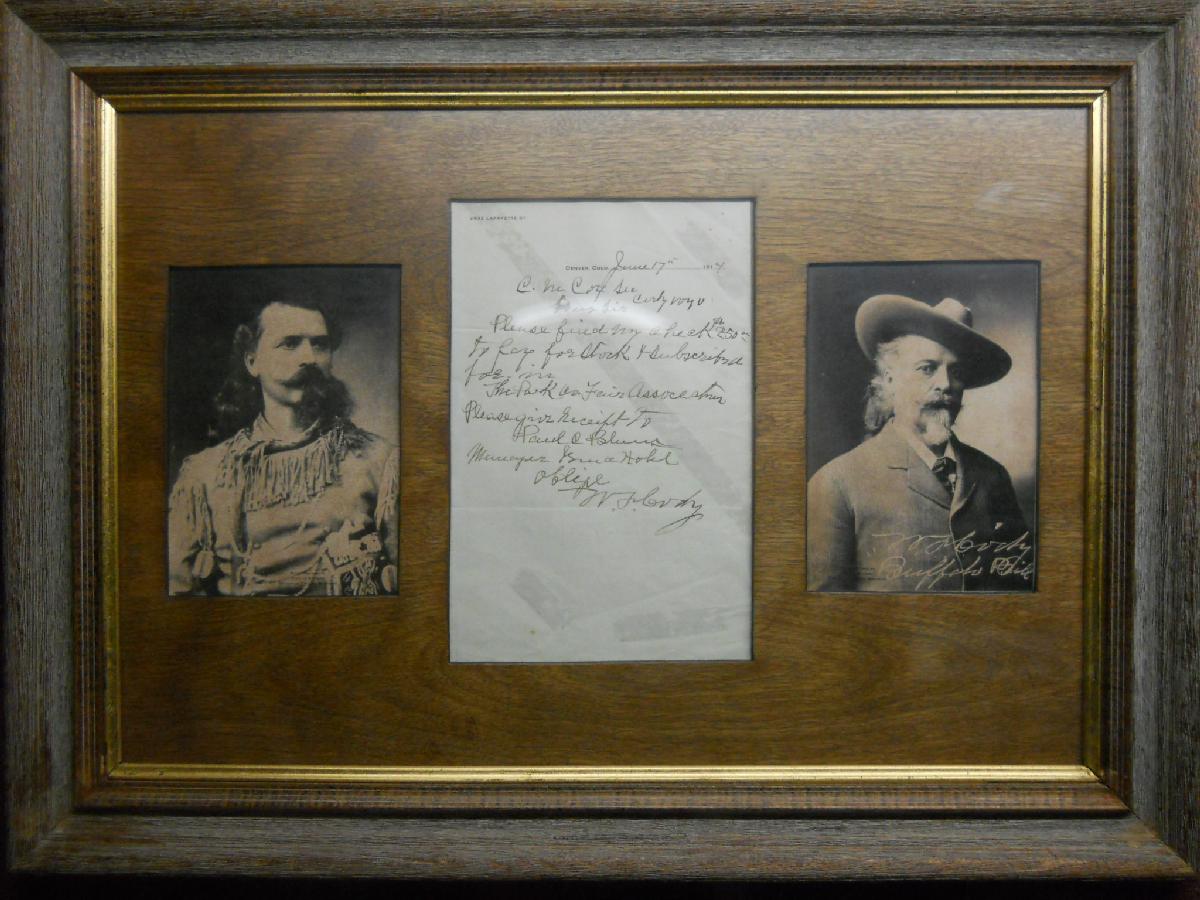 2932 LAFAYETTE ST.
DENVER, COLO. June 17th 1914
C. M. Coy Sec
Dear Sir Cody Wyo
Please find my check $250
to pay for Stock I subscribed
for in
The Park Co Fair Association
Please give receipt to
Paul
Manager Irma Hotel
oblige
W. F. Cody
W. F. Cody
Buffalo Bill